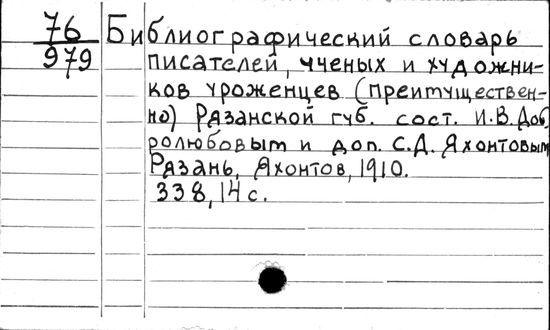 76
979
Библиографический словарь
писателей, ученых и художни-
ков уроженцев (преимуществен-
но) Рязанской губ. сост. И.В.Доб
ролюбовым и доп. С.Д. Яхонтовым
Рязань, Яхонтов, 1910.
338, 14 с.